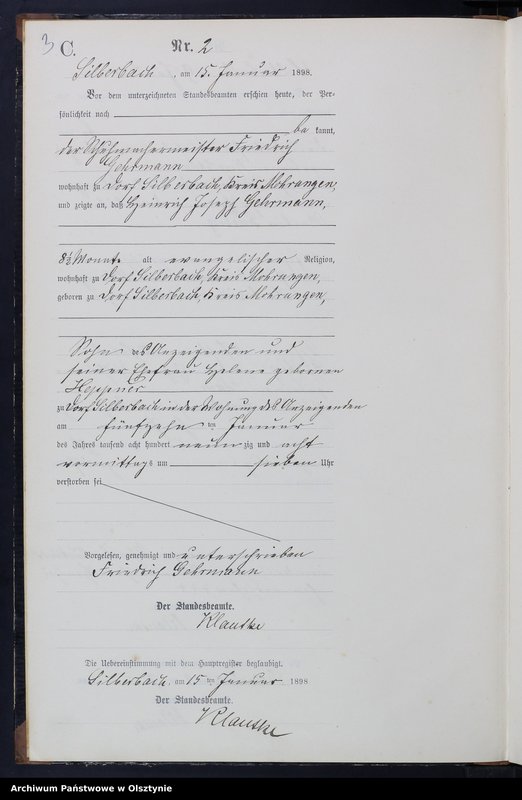 3
C.
Nr. 2
Silberbach, am 15. Januar 1898.
Vor dem unterzeichneten Standesbeamten erschien heute, der Per-
sönlichkeit nach
be kannt,
der Schuhmachermeister Friedrich
Gehrmann
wohnhaft zu Dorf Silberbach, Kreis Mohrungen,
und zeigte an, daß Heinrich Joseph Gehrmann,
8½ Monate alt evangelischer Religion,
wohnhaft zu Dorf Silberbach, Kreis Mohrungen,
geboren zu Dorf Silberbach, Kreis Mohrungen,
Sohn des Anzeigenden und
seiner Ehefrau Helene geborenen
zu Dorf Silberbach in der Wohnung des Anzeigenden
am fünfzehn ten Januar
des Jahres tausend acht hundert neun zig und acht
vormittags um sieben Uhr
verstorben sei
Vorgelesen, genehmigt und unterschrieben
Friedrich Gehrmann
Der Standesbeamte.
Klautke
Die Uebereinstimmung mit dem Hauptregister beglaubigt.
Silberbach, am 15 ten Januar 1898
Der Standesbeamte.
Klautke
Archiwum Państwowe w Olsztynie